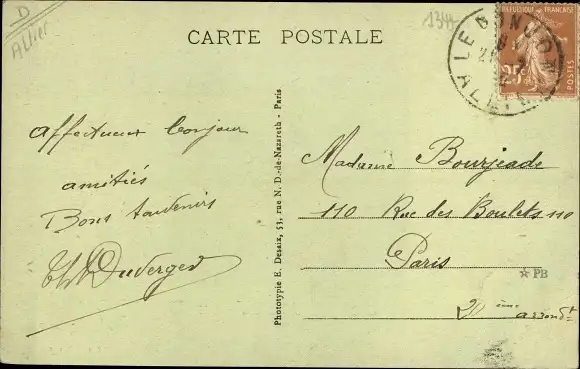 D
Allier
CARTE POSTALE
1344
REPUBLIQUE FRANÇAISE
25c
POSTES
LE DONJON
ALLIER
affectueux bonjour
amitiés
Bons souvenirs
Duverger
Phototypie E. Desaix, 53, rue N.-D.-de-Nazareth - Paris
Madame Bourjeade
110 Rue des Boulets 110
Paris
PB
20 ème arrondt